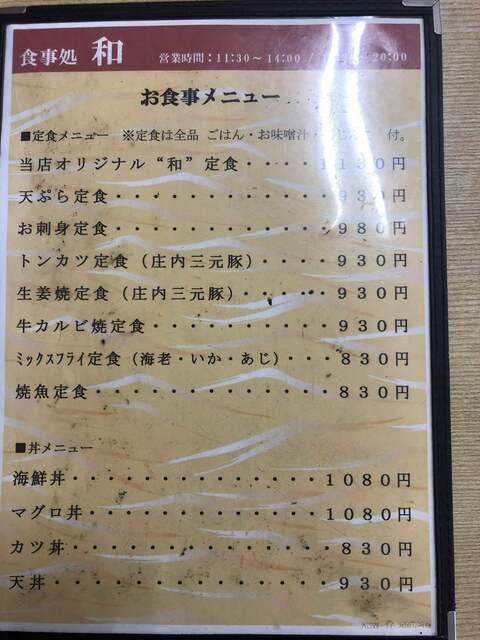 食事処 和
営業時間：11:30～14:00 / 20:00
お食事メニュー
■定食メニュー ※定食は全品 ごはん・お味噌汁・ 付。
当店オリジナル“和”定食・・・・1130円
天ぷら定食・・・・・・・・・・・・930円
お刺身定食・・・・・・・・・・・・980円
トンカツ定食（庄内三元豚）・・・・930円
生姜焼定食（庄内三元豚）・・・・・930円
牛カルビ焼定食・・・・・・・・・・930円
ミックスフライ定食（海老・いか・あじ）・・・830円
焼魚定食・・・・・・・・・・・・・830円
■丼メニュー
海鮮丼・・・・・・・・・・・・・1080円
マグロ丼・・・・・・・・・・・・1080円
カツ丼・・・・・・・・・・・・・・830円
天丼・・・・・・・・・・・・・・・930円